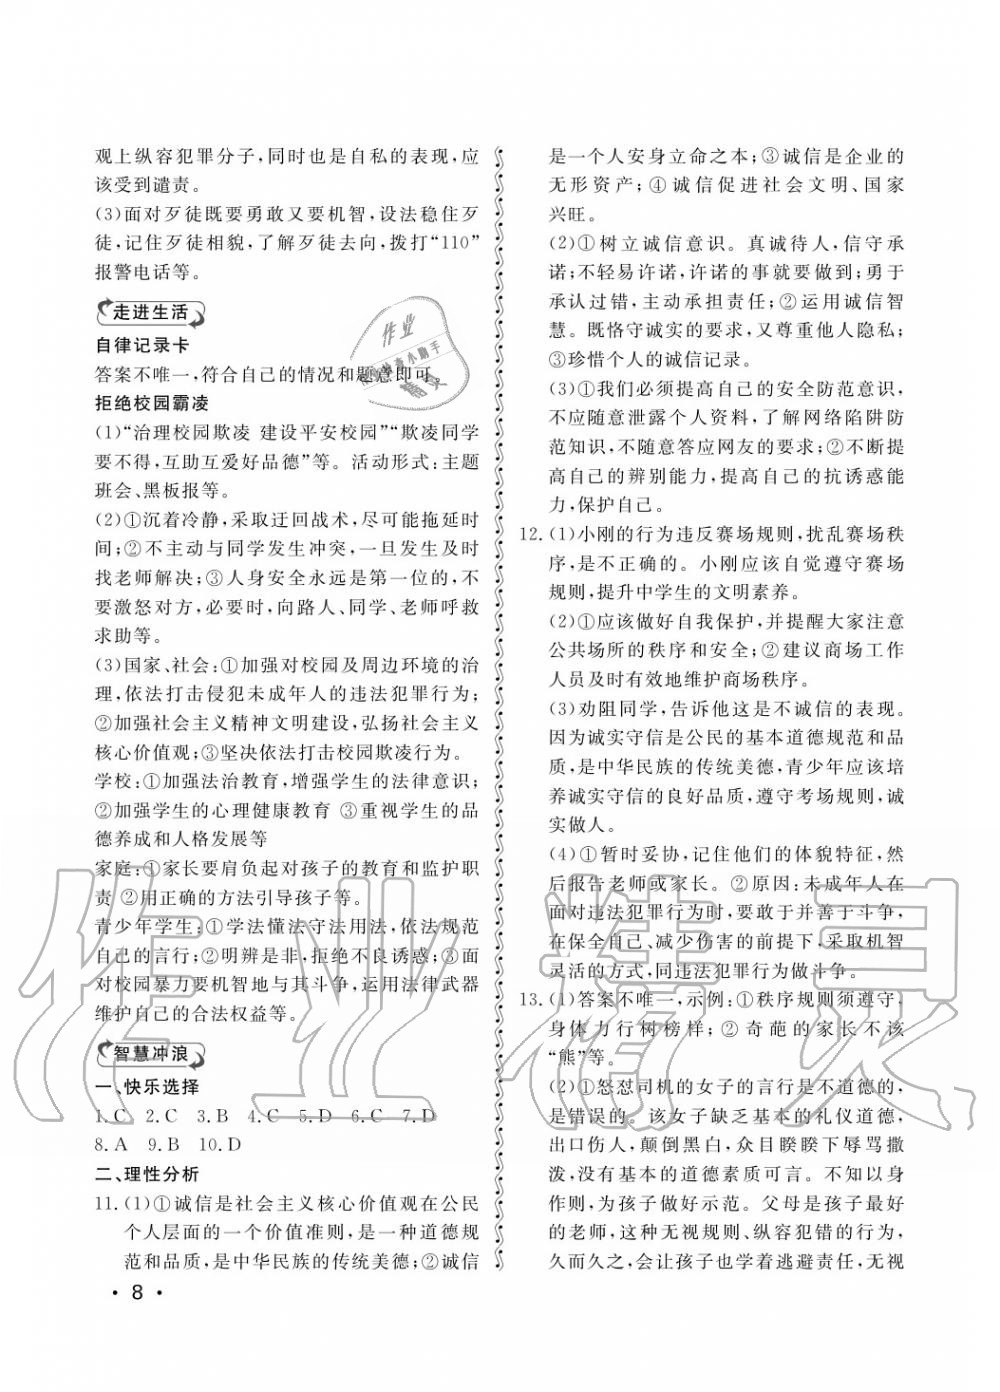 观上纵容犯罪分子,同时也是自私的表现,应
该受到谴责。
(3)面对歹徒既要勇敢又要机智,设法稳住歹
徒,记住歹徒相貌,了解歹徒去向,拨打“110”
报警电话等。
走进生活
自律记录卡
答案不唯一,符合自己的情况和题意即可
拒绝校园霸凌
(1)“治理校园欺凌 建设平安校园”“欺凌同学
要不得,互助互爱好品德”等。活动形式:主题
班会、黑板报等。
(2)①沉着冷静,采取迂回战术,尽可能拖延时
间;②不主动与同学发生冲突,一旦发生及时
找老师解决;③人身安全永远是第一位的,不
要激怒对方,必要时,向路人、同学、老师呼救
求助等。
(3)国家、社会:①加强对校园及周边环境的治
理,依法打击侵犯未成年人的违法犯罪行为;
②加强社会主义精神文明建设,弘扬社会主义
核心价值观;③坚决依法打击校园欺凌行为。
学校:①加强法治教育,增强学生的法律意识;
②加强学生的心理健康教育 ③重视学生的品
德养成和人格发展等
家庭:①家长要肩负起对孩子的教育和监护职
责 ②用正确的方法引导孩子等。
青少年学生:①学法懂法守法用法,依法规范
自己的言行;②明辨是非,拒绝不良诱惑;③面
对校园暴力要机智地与其斗争,运用法律武器
维护自己的合法权益等。
智慧冲浪
一、快乐选择
1.C 2.C 3.B 4.C 5.D 6.C 7.D
8.A 9.B 10.D
二、理性分析
11.(1)①诚信是社会主义核心价值观在公民
个人层面的一个价值准则,是一种道德规
范和品质,是中华民族的传统美德;②诚信
是一个人安身立命之本;③诚信是企业的
无形资产;④诚信促进社会文明、国家
兴旺。
(2)①树立诚信意识。真诚待人,信守承
诺;不轻易许诺,许诺的事就要做到;勇于
承认过错,主动承担责任;②运用诚信智
慧。既恪守诚实的要求,又尊重他人隐私;
③珍惜个人的诚信记录。
(3)①我们必须提高自己的安全防范意识,
不应随意泄露个人资料,了解网络陷阱防
范知识,不随意答应网友的要求;②不断提
高自己的辨别能力,提高自己的抗诱惑能
力,保护自己。
12.(1)小刚的行为违反赛场规则,扰乱赛场秩
序,是不正确的。小刚应该自觉遵守赛场
规则,提升中学生的文明素养。
(2)①应该做好自我保护,并提醒大家注意
公共场所的秩序和安全;②建议商场工作
人员及时有效地维护商场秩序。
(3)劝阻同学,告诉他这是不诚信的表现。
因为诚实守信是公民的基本道德规范和品
质,是中华民族的传统美德,青少年应该培
养诚实守信的良好品质,遵守考场规则,诚
实做人。
(4)①暂时妥协,记住他们的体貌特征,然
后报告老师或家长。②原因:未成年人在
面对违法犯罪行为时,要敢于并善于斗争,
在保全自己、减少伤害的前提下,采取机智
灵活的方式,同违法犯罪行为做斗争。
13.(1)答案不唯一,示例:①秩序规则须遵守,
身体力行树榜样;②奇葩的家长不该
“熊”等。
(2)①怒怼司机的女子的言行是不道德的,
是错误的。该女子缺乏基本的礼仪道德,
出口伤人,颠倒黑白,众目睽睽下辱骂撒
泼,没有基本的道德素质可言。不知以身
作则,为孩子做好示范。父母是孩子最好
的老师,这种无视规则、纵容犯错的行为,
久而久之,会让孩子也学着逃避责任,无视
· 8 ·
作业精灵